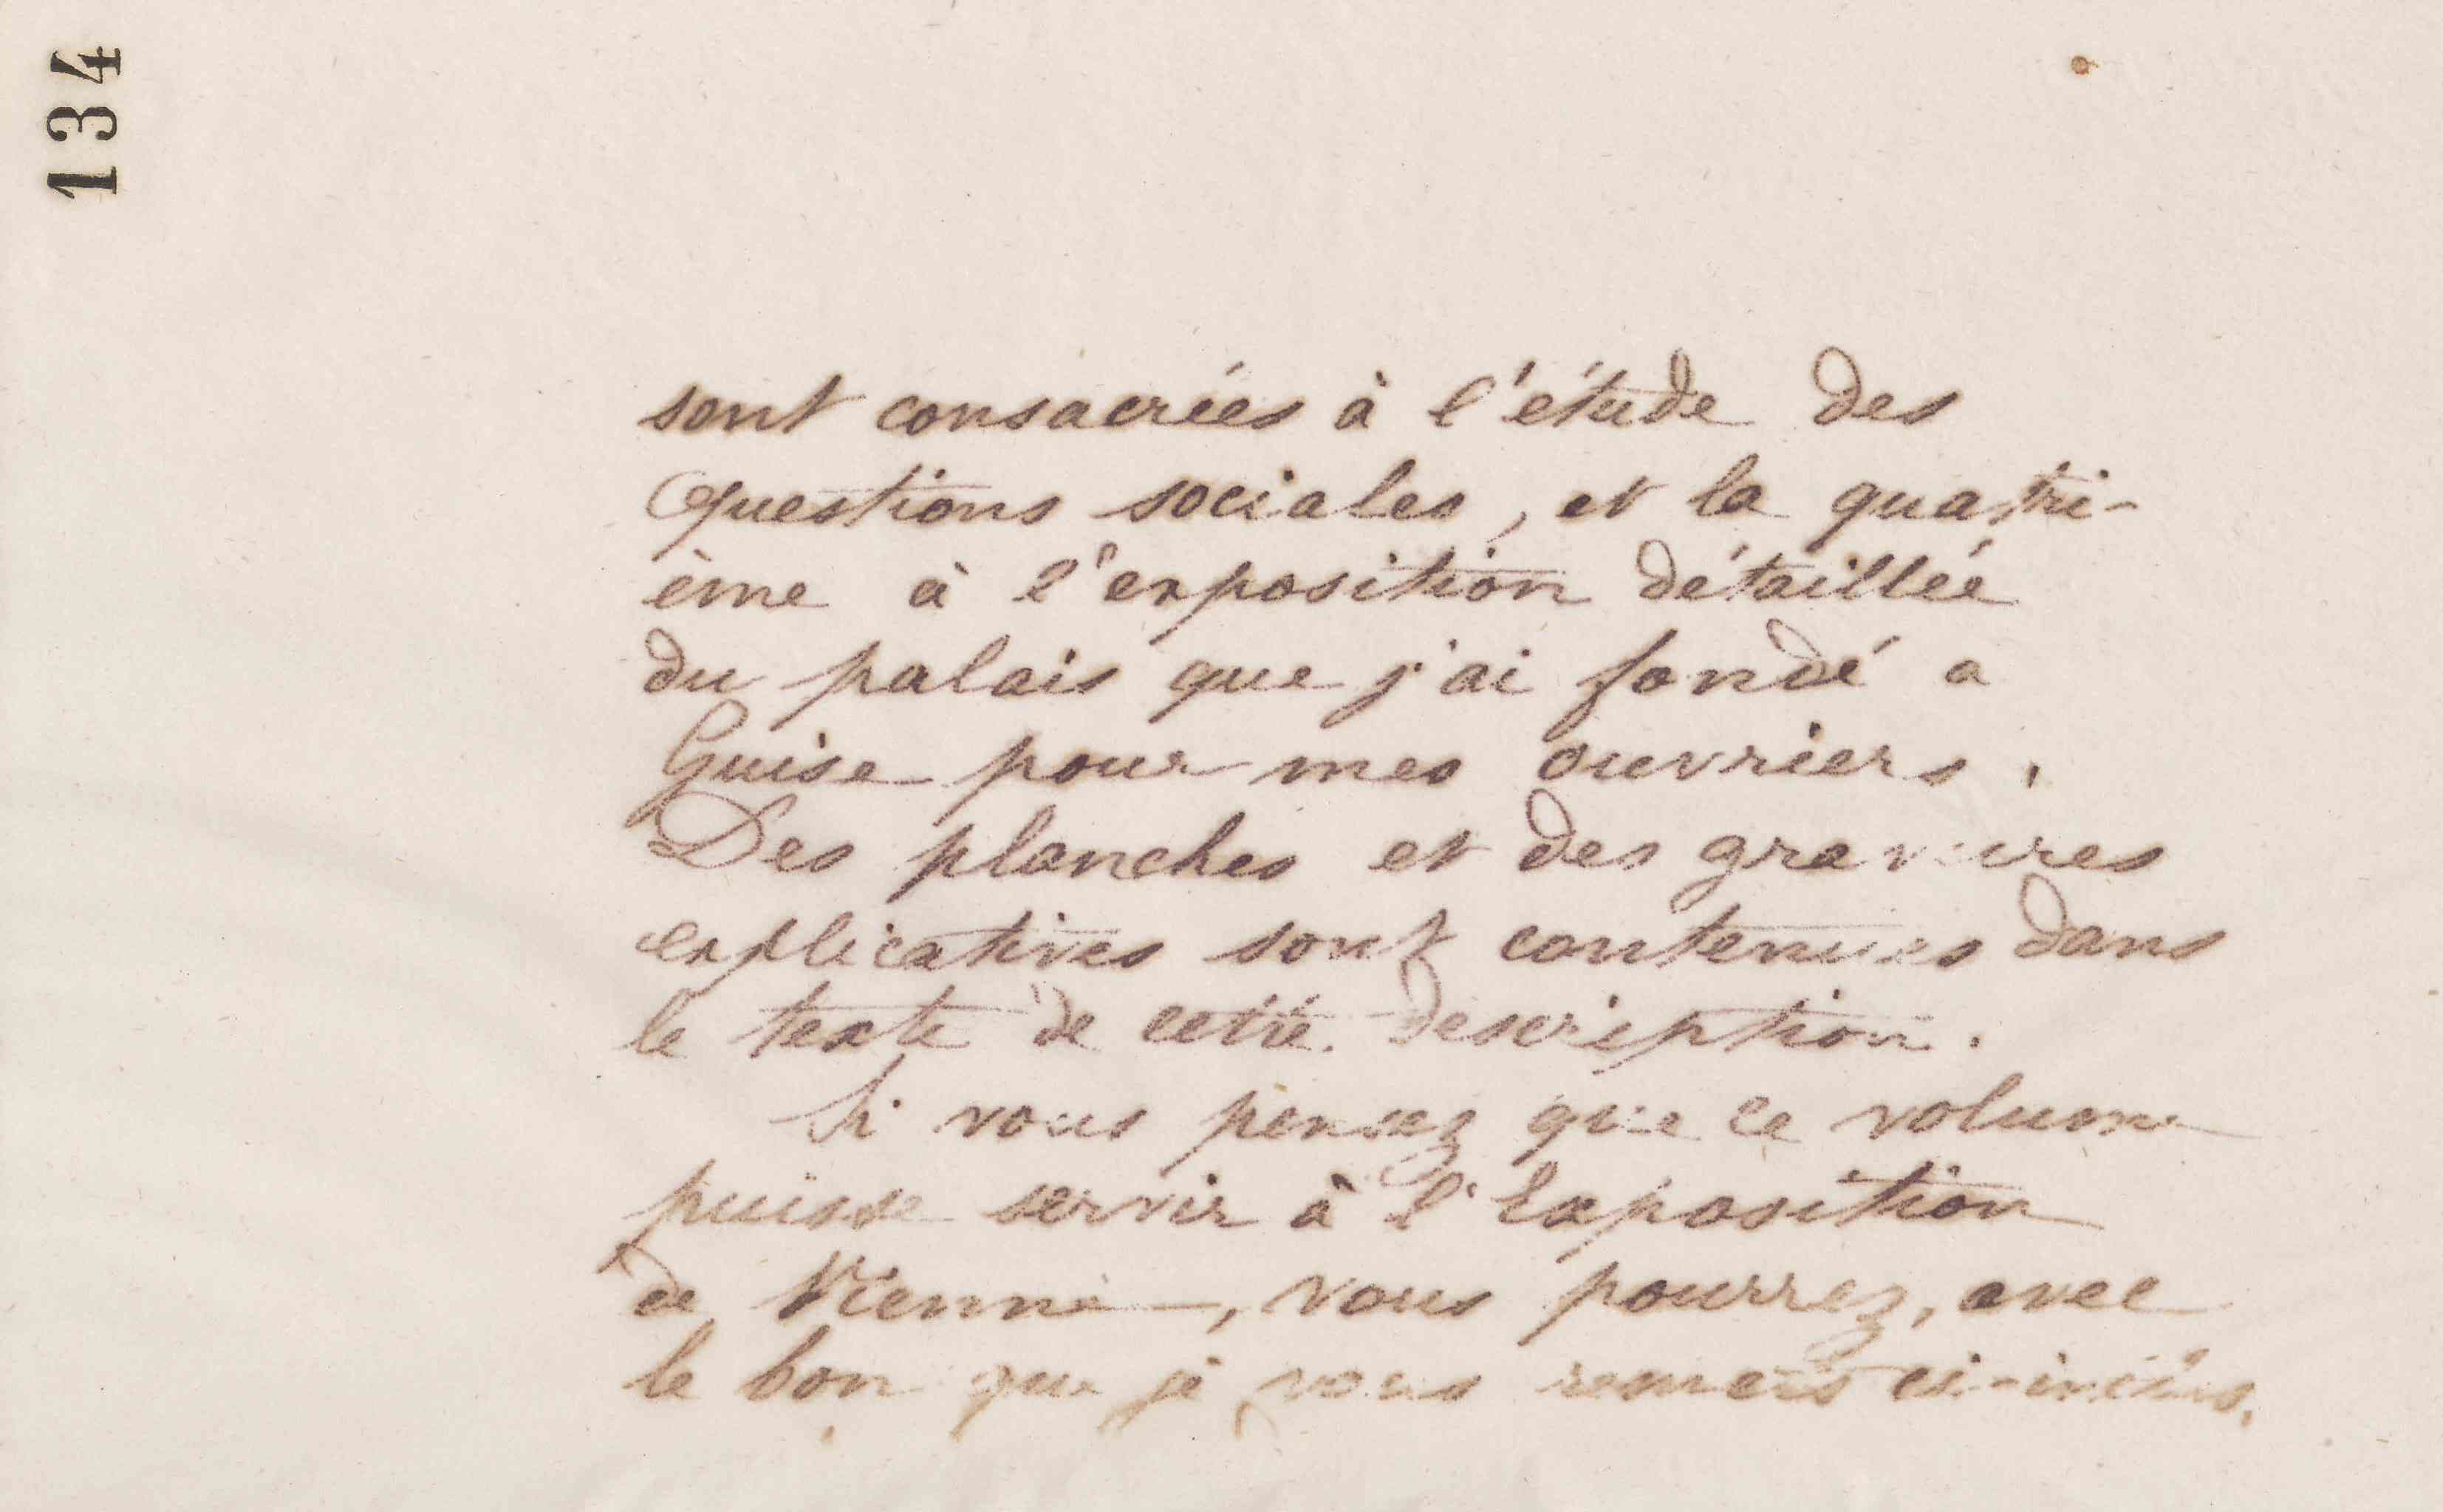 134
sont consacrées à l'étude des
questions sociales, et la quatri-
ème à l'exposition détaillée
du palais que j'ai fondé a
Guise pour mes ouvriers.
Des planches et des gravures
explicatives sont contenues dans
le texte de cette description.
Si vous pensez que ce volume
puisse servir à l'Exposition
de Vienne, vous pourrez, avec
le bon que je vous remets ci-inclus,